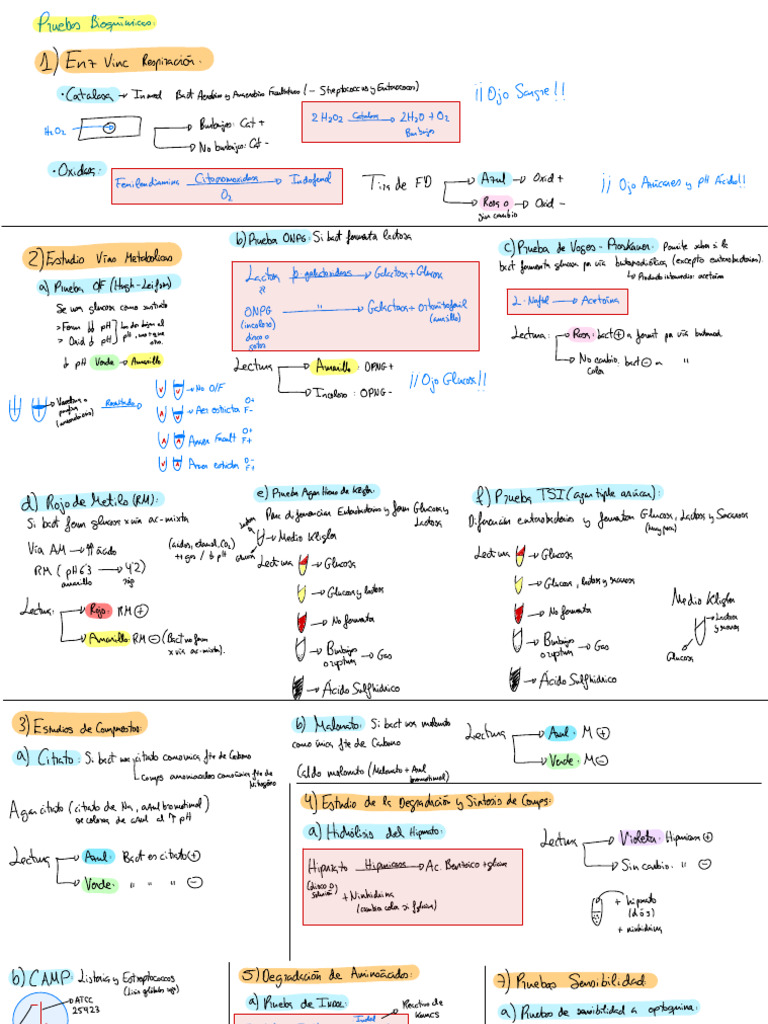 Pruebas Bioquímicas:
1) Enz Vinc Respiración.
· Catalasa → In med Bact Aerobias y Anaerobias Facultativas (- Streptococcus y Enterococos)
¡¡Ojo Sangre!!
H2O2
Burbujas: Cat +
No burbujas: Cat -
2H2O2 Catalasa → 2H2O + O2
Burbujas
· Oxidasa:
Fenilendiamina Citocromoxidasa → Indofenol
O2
Tira de FD
Azul → Oxid +
Rosa o → Oxid -
sin cambio
¡¡ Ojo Azúcares y pH Ácido!!
2) Estudio Vías Metabólicas
a) Prueba O/F (Hugh-Leifson)
Se usa glucosa como sustrato
> Ferm ↓↓ pH
> Oxid ↓ pH
↓ pH Verde → Amarillo
Resultado
→ No O/F
→ Aer estricta O+ F-
Anaer Facult O+ F+
Anaer estricta O- F+
b) Prueba ONPG: Si bact fermenta lactosa
Lactosa β-galactosidasa → Galactosa + Glucosa
ONPG " → Galactosa + Ortonitrofenil
(incoloro) (amarillo)
disco o
gotas
Lectura
Amarillo: OPNG+
Incoloro: OPNG-
¡¡Ojo Glucosa!!
c) Prueba de Voges-Proskauer: Permite saber si la
bact fermenta glucosa por vía butanodiólica (excepto enterobacterias).
↳ Producto intermedio: acetoína
2-Naftol → Acetoína
Lectura:
Rosa: bact + a ferment por vía butanod.
No cambio. bact - a "
color
d) Rojo de Metilo (RM):
Si bact ferm glucosa x vía ac-mixta
Vía AM → ↑↑ ácido (ácidos, etanol, CO2)
+ gas / ↓ pH
RM (pH 6'3 → 4'2)
amarillo rojo
Lectura:
Rojo: RM +
Amarillo: RM - (Bact no ferm
x vía ac-mixta).
e) Prueba Agar Hierro de Kligler
Para diferenciar Enterobacterias y ferm Glucosa y
Lactosa
→ Medio Kligler
Glucosa
Lectura
→ Glucosa
→ Glucosa y lactosa
→ No fermenta
→ Burbujas → Gas
o ruptura
→ Ácido Sulfhídrico
f) Prueba TSI (agar triple azúcar):
Diferenciar enterobacterias y fermentan Glucosa, Lactosa y Sacarosa
Lectura
→ Glucosa
→ Glucosa, lactosa y sacarosa
→ No fermenta
→ Burbujas → Gas
o ruptura
→ Ácido Sulfhídrico
Medio Kligler
→ Lactosa
y sacarosa
Glucosa
3) Estudios de Compuestos:
a) Citrato: Si bact usa citrato como única fte de Carbono
↳ Comps amoniacados como única fte de
Nitrógeno
Agar citrato (citrato de Na, azul bromotimol)
se colorea de azul al ↑ pH
Lectura
Azul: Bact es citrato +
Verde: " " " -
b) Malonato: Si bact usa malonato
como única fte de Carbono
Caldo malonato (Malonato + Azul
bromotimol)
Lectura
Azul: M +
Verde: M -
4) Estudio de la Degradación y Síntesis de Comps:
a) Hidrólisis del Hipurato:
Hipurato Hipuricasa → Ac. Benzoico + glicina
(disco o
solución)
+ Ninhidrina
(cambia color si glicina)
Lectura
Violeta: Hipuricasa +
Sin cambio. " -
+ hipurato
(d ó s)
+ ninhidrina
b) CAMP: Listeria y Estreptococos
→ ATCC
25923
5) Degradación de Aminoácidos:
a) Prueba de Indol:
Indol
→ Reactivo de
Kovacs
7) Pruebas Sensibilidad:
a) Pruebas de sensibilidad a optoquina: